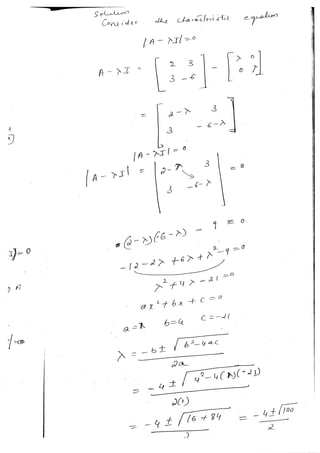 Solution
Consider the characteristic equation
|A - λI| = 0
A - λI = [2 3; 3 -6] - [λ 0; 0 λ]
= [2-λ 3; 3 -6-λ]
|A - λI| = 0
|A - λI| = |2-λ 3; 3 -6-λ| = 0
(2-λ)(-6-λ) - 9 = 0
-12 - 2λ + 6λ + λ² - 9 = 0
λ² + 4λ - 21 = 0
ax² + bx + c = 0
a = 1 b = 4 c = -21
λ = -b ± √b² - 4ac
2a
= -4 ± √4² - 4(1)(-21)
2(1)
= -4 ± √16 + 84 = -4 ± √100
2 2